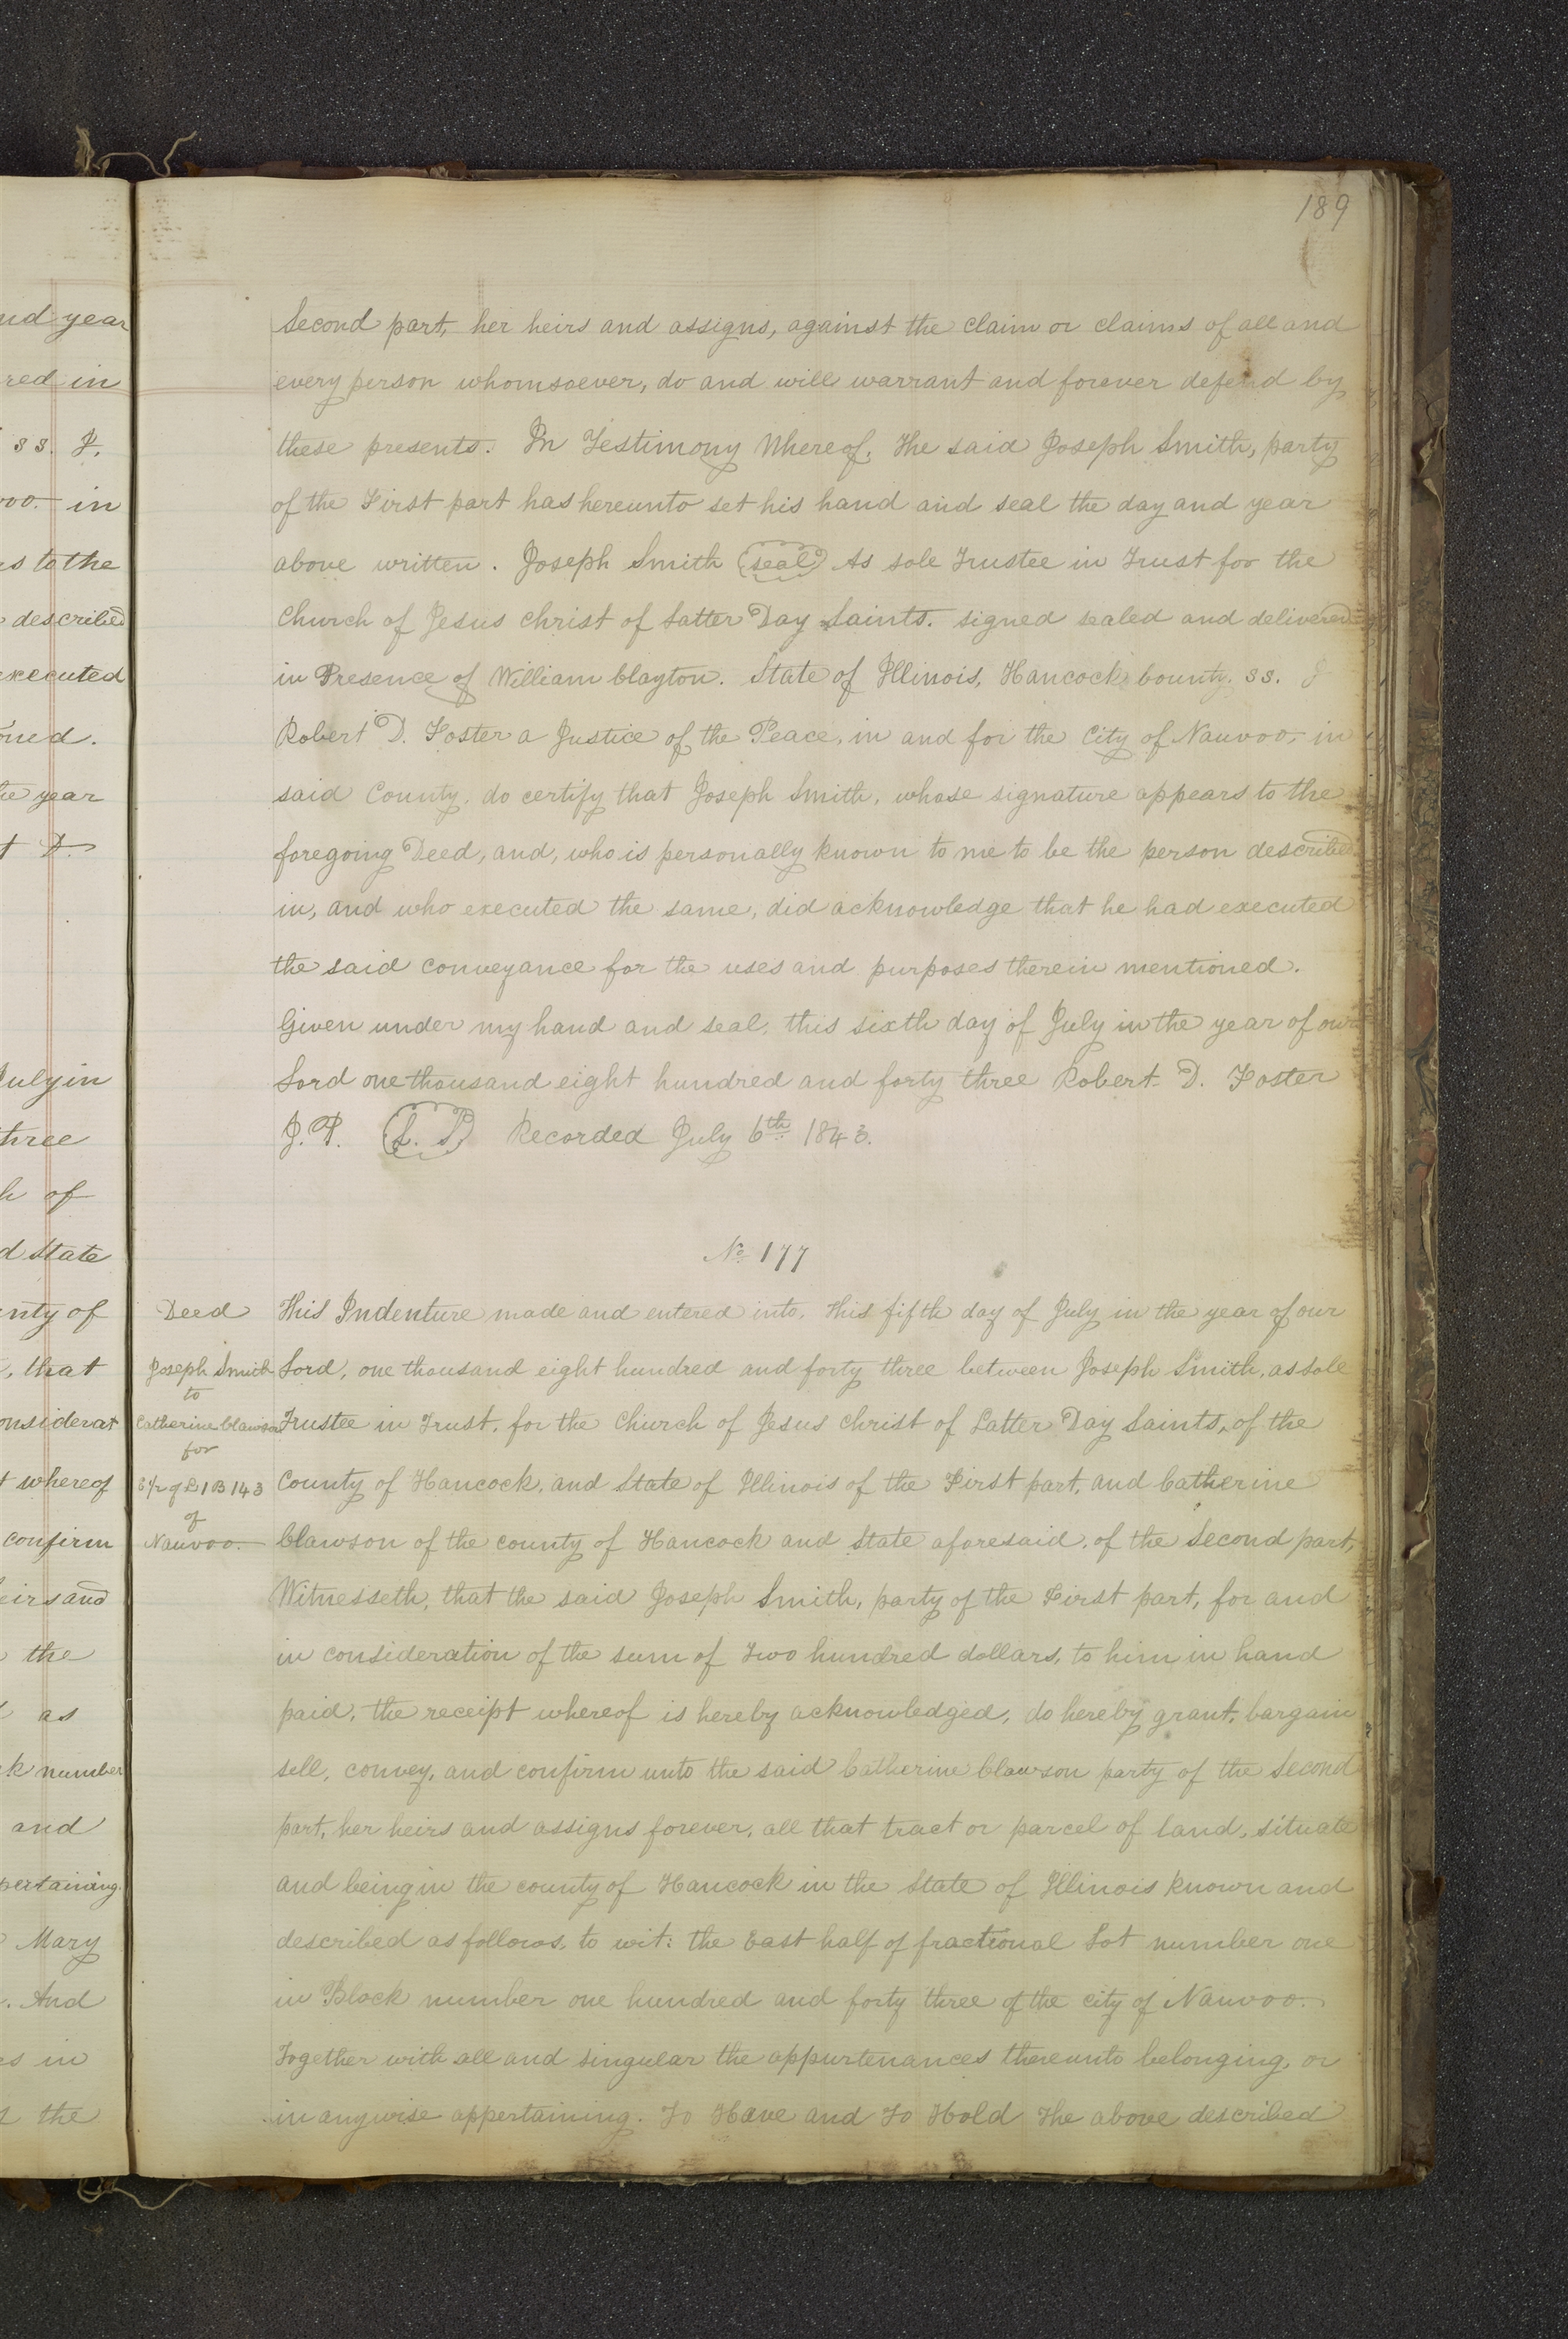 189
Second part, her heirs and assigns, against the claim or claims of all and
every person whomsoever, do and will warrant and forever defend by
these presents. In Testimony Whereof, The said Joseph Smith, party
of the First part has hereunto set his hand and seal the day and year
above written. Joseph Smith (seal) As sole Trustee in Trust for the
Church of Jesus Christ of Latter Day Saints. signed sealed and delivered
in Presence of William Clayton. State of Illinois, Hancock County. ss. I
Robert D. Foster a Justice of the Peace, in and for the City of Nauvoo, in
said County, do certify that Joseph Smith, whose signature appears to the
foregoing Deed, and, who is personally known to me to be the person described
in, and who executed the same, did acknowledge that he had executed
the said conveyance for the uses and purposes therein mentioned.
Given under my hand and seal, this sixth day of July in the year of our
Lord one thousand eight hundred and forty three Robert D. Foster
J.P. (L. S.) Recorded July 6th 1843.
No. 177
Deed
Joseph Smith
to
Catherine Clawson
for
E 1/2 of L 1 B 143
of
Nauvoo.
This Indenture made and entered into, this fifth day of July in the year of our
Lord, one thousand eight hundred and forty three between Joseph Smith, as sole
Trustee in Trust, for the Church of Jesus Christ of Latter Day Saints, of the
County of Hancock, and State of Illinois of the First part, and Catherine
Clawson of the county of Hancock and State aforesaid, of the Second part,
Witnesseth, that the said Joseph Smith, party of the First part, for and
in consideration of the sum of Two hundred dollars, to him in hand
paid, the receipt whereof is hereby acknowledged, do hereby grant, bargain
sell, convey, and confirm unto the said Catherine Clawson party of the Second
part, her heirs and assigns forever, all that tract or parcel of land, situate
and being in the county of Hancock in the State of Illinois known and
described as follows, to wit: the East half of fractional Lot number one
in Block number one hundred and forty three of the city of Nauvoo.
Together with all and singular the appurtenances thereunto belonging, or
in anywise appertaining. To Have and To Hold The above described